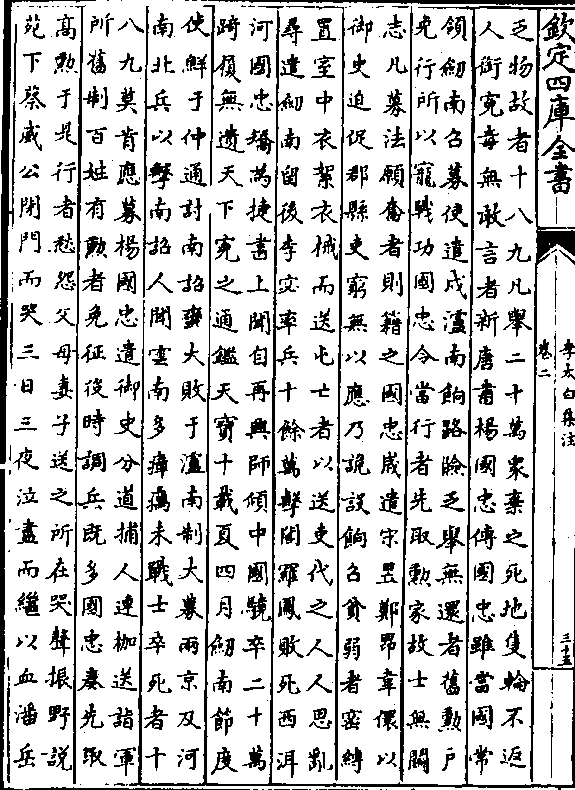 欽定四庫全書
李太白集注
卷二
三十五
乏物故者十八九凡舉二十萬衆棄之死地隻輪不返
人銜寃毒無敢言者新唐書楊國忠傳國忠雖當國常
領劒南召募使遣戍瀘南餉路險乏舉無還者舊勲户
免行所以寵戰功國忠令當行者先取勲家故士無鬭
志凡募法願奮者則籍之國忠歲遣宋昱鄭昂韋儇以
御史迫促郡縣吏窮無以應乃詭設餉召貧弱者密縛
置室中衣絮衣械而送屯亡者以送吏代之人人思亂
尋遣劒南留後李宓率兵十餘萬擊閣羅鳳敗死西洱
河國忠矯為捷書上聞自再興師傾中國驍卒二十萬
踦屨無遺天下寃之通鑑天寳十載夏四月劒南節度
使鮮于仲通討南詔蠻大敗于瀘南制大募兩京及河
南北兵以擊南詔人聞雲南多瘴癘未戰士卒死者十
八九莫肯應募楊國忠遣御史分道捕人連枷送詣軍
所舊制百姓有勲者免征役時調兵既多國忠奏先取
髙勲于是行者愁怨父母妻子送之所在哭聲振野説
苑下蔡威公閉門而哭三日三夜泣盡而繼以血潘岳